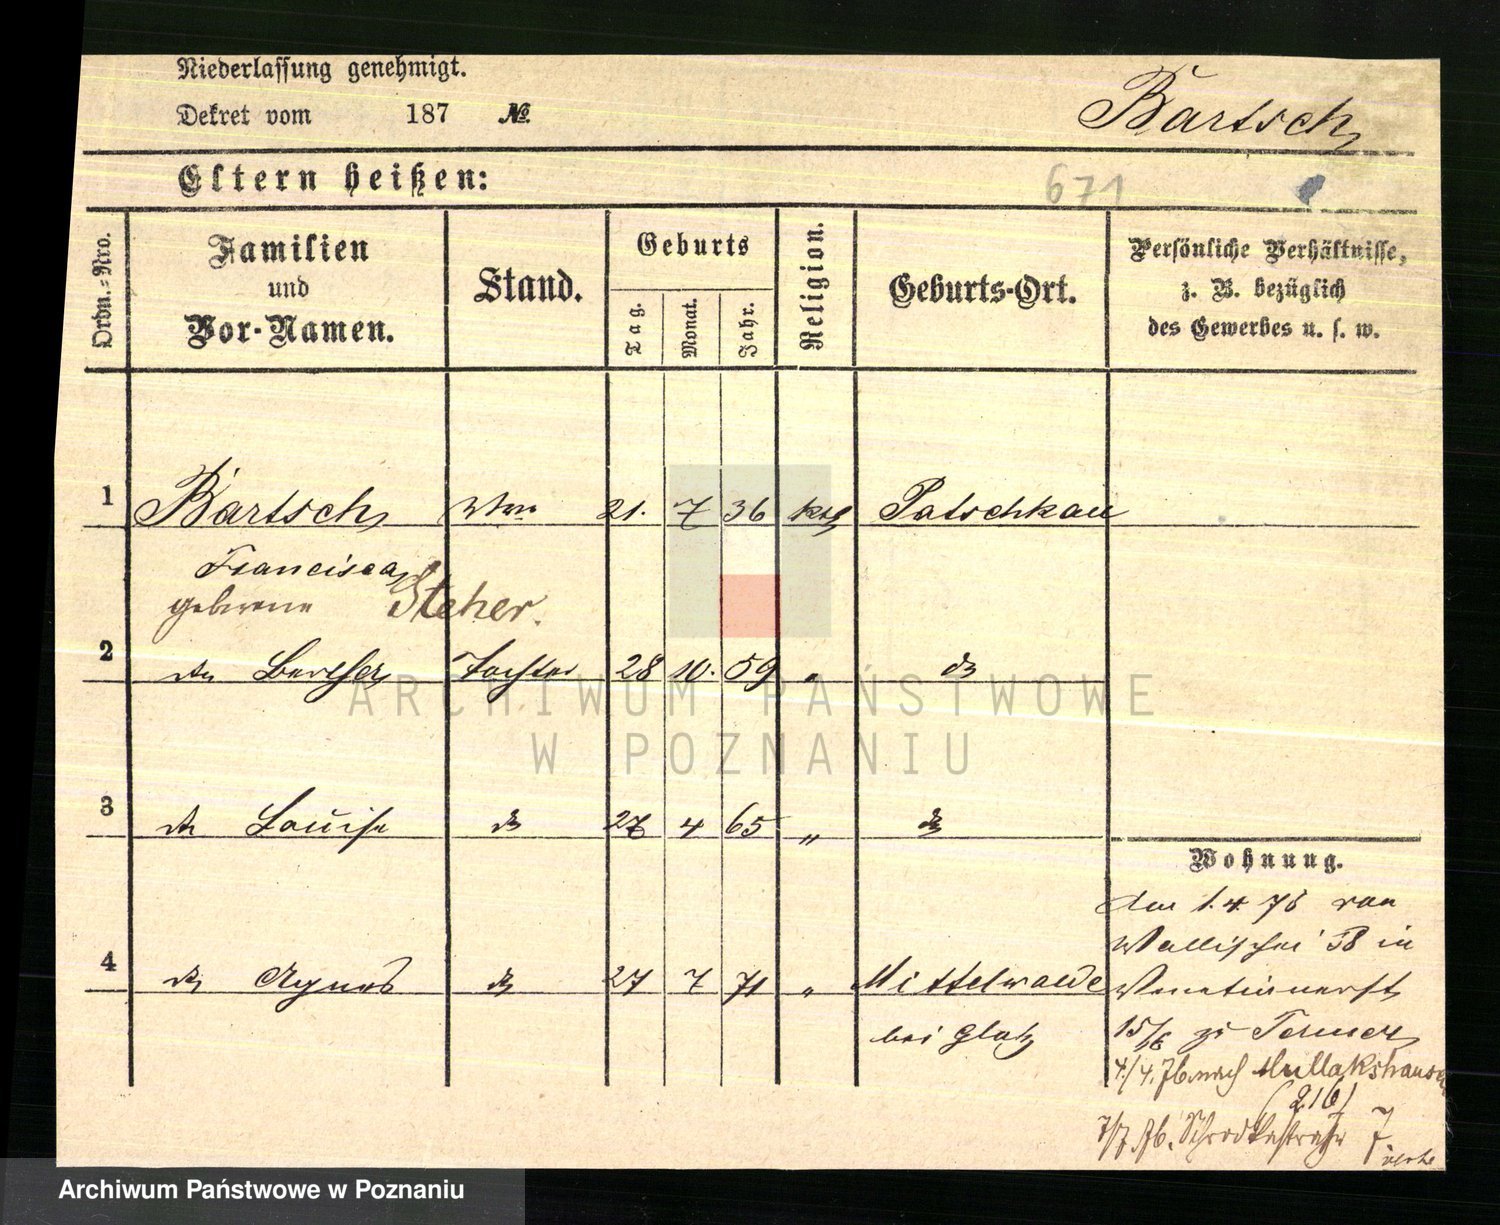 Niederlassung genehmigt.
Dekret vom 187 №
Bartsch
Eltern heißen:
671
Ordn.-Nro.
Familien
und
Vor-Namen.
Stand.
Geburts
Tag.
Monat.
Jahr.
Religion.
Geburts-Ort.
Persönliche Verhältnisse,
z. B. bezüglich
des Gewerbes u. s. w.
1 Bartsch Wwe 21. 7 36 kth Patschkau
Francisca
geborene Steher.
2 do Bertha Tochter 28 10. 59 " do
3 do Louise do 27 4 65 " do
4 do Agnes do 27 7 71 " Mittelwalde
bei Glatz
Wohnung.
Am 1.4 76 von
Wallischei 58 in
Venetianerst
15/16 zu
4/4.76. nach
(216)
7/7.76. Schrodkastraße 7
ARCHIWUM PAŃSTWOWE
W POZNANIU
Archiwum Państwowe w Poznaniu